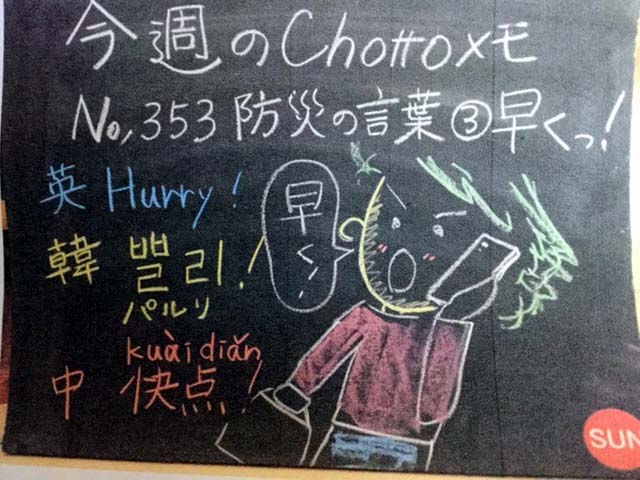 今週のChottoメモ
No,353 防災の言葉③早くっ!
英 Hurry!
早く
韓 빨리!
パルリ
kuài diǎn
中 快点!
SUN